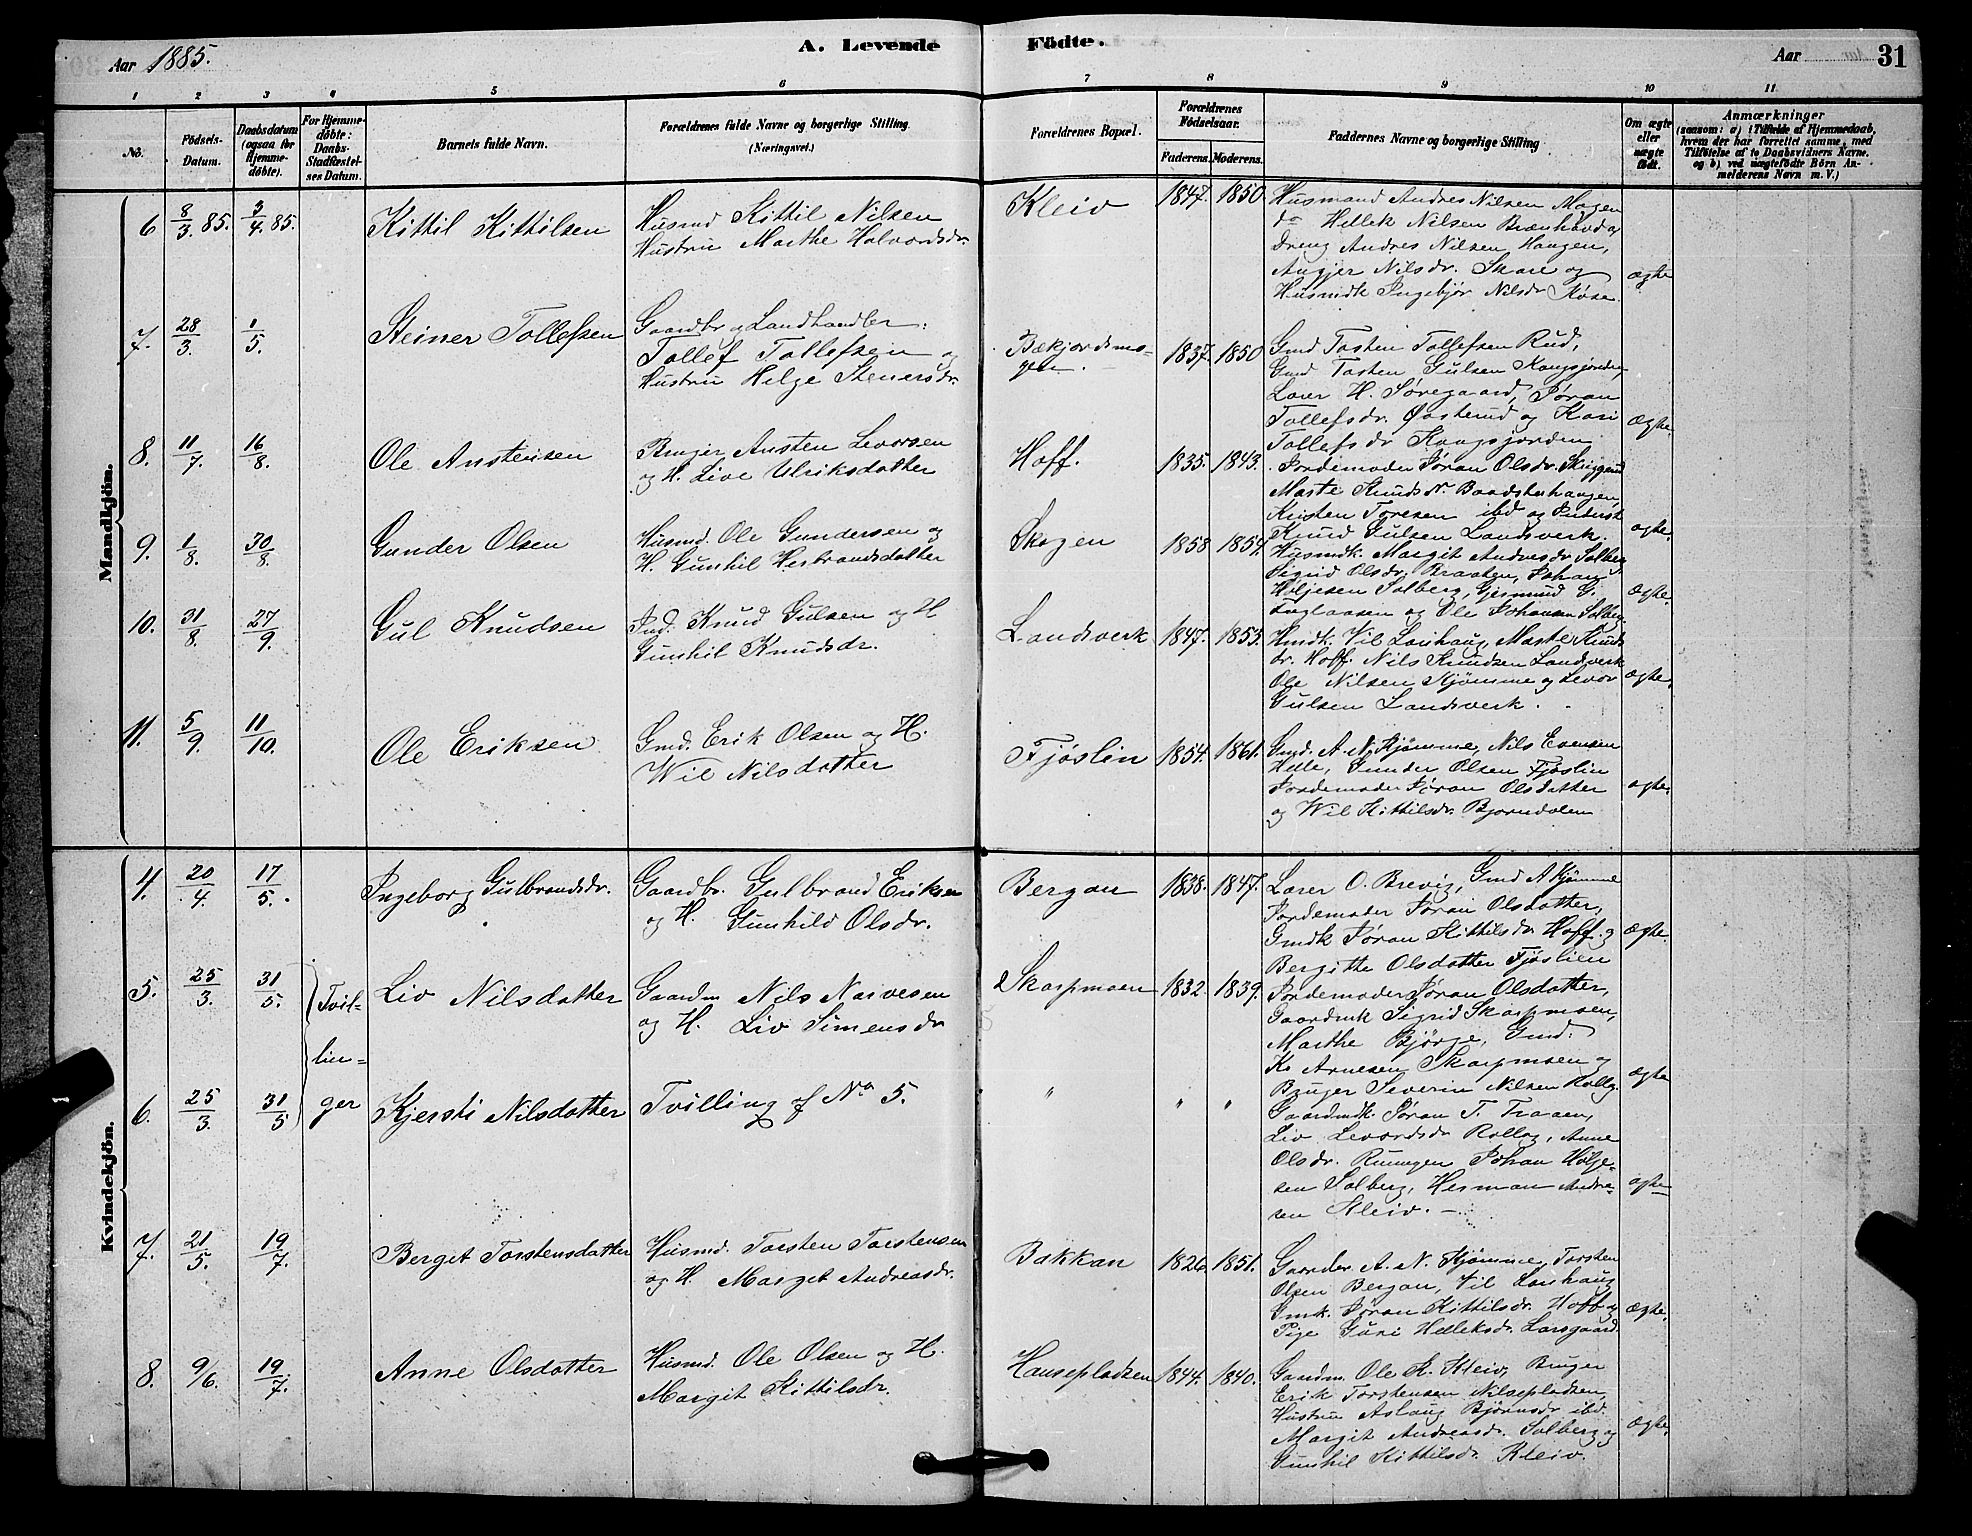 Aar 1885.
A. Levende Födte.
Aar
31
1 2 3 4 5 6 7 8 9 10 11
No.
Födsels-Datum.
Daabsdatum (ogsaa for Hjemme-döbte).
For Hjemme-döbte: Daabs-Stadfæstel-ses Datum.
Barnets fulde Navn.
Forældrenes fulde Navne og borgerlige Stilling. (Næringsvei.)
Forældrenes Bopæl.
Forældrenes Födselsaar.
Faderens. Moderens.
Faddernes Navne og borgerlige Stilling
Om ægte eller uægte födt.
Anmærkninger
(saasom: a) i Tilfælde af Hjemmedaab,
hvem der har forrettet samme, med
Tilföielse af to Daabsvidners Navne,
og b) ved uægtefödte Börn An-
melderens Navn m. V.)
Mandkjön.
6 8/3 85. 3/4 85. Kittil Kittilsen
Husmd Kittil Nilsen
Hustru Marthe Halvordsdr.
Kleiv 1847. 1850.
Husmand Andres Nilsen Mogen
do Hellek Nilsen
Dreng Andres Nilsen Haugen,
Augjer Nilsdr. Skare og
Husmdk Ingebjør Nilsdr
ægte
7. 28/3. 1/5. Steiner Tollefsen
Gaardbr og Landhandler
Tollef Tollefsen og
Hustru Helge Stenersdr.
Bækjordsmo-
gen. 1837. 1850
Gmd Tosten Tollefsen Rud,
Gmd Tosten Gulsen Kongsjorden,
Lærer H. Søregaard, Jøran
Tollefsdr. Østerud og Kari
Tollefsdr Kongsjorden
ægte.
8. 11/7. 16/8. Ole Anstensen
Bruger Ansten Levorsen
og H. Live Ulriksdatter
Hoff. 1835. 1843.
Jordemoder Jøran Olsdr.
Marte Knudsdr. Baadstuhaugen,
Kristen Toresen ibd og Inderst
Knud Gulsen Landsverk.
ægte.
9. 1/8. 30/8. Gunder Olsen
Husmd. Ole Gundersen og
H. Gunhil Herbrandsdatter
Skogen 1858 1854.
Husmdk. Margit Andresdr Solberg
Sigrid Olsdr. Braaten, Johan
Høljesen Solberg, Gjermund G.
Fuglaasen og Ole Johansen Solberg
ægte.
10. 31/8. 27/9. Gul Knudsen
Ind. Knud Gulsen og H
Gunhil Knudsdr.
Landsverk 1847. 1853.
Hmdk. Vil Lauhaug, Marte Knuds
dr. Hoff. Nils Knudsen Landsverk
Ole Nilsen Kjømme og Levor
Gulsen Landsverk.
ægte.
11. 5/9. 11/10. Ole Eriksen
Gmd. Erik Olsen og H.
Wil Nilsdatter
Fjøslin 1854. 1861.
Gmd. A. N. Kjømme, Nils Evensen
Helle, Gunder Olsen Fjøslin
Jordemoder Jøran Olsdatter
og Wil Kittilsdr. Bjørndalen
ægte.
Kvindekjön.
4. 20/4. 17/5. Ingeborg Gulbrandsdr.
Gaardbr. Gulbrand Eriksen
og H. Gunhild Olsdr.
Bergan 1838. 1847.
Lærer O. Brevig, Gmd A Kjømme
Jordemoder Jøran Olsdatter,
Gmdk Jøran Kittilsdr Hoff. og
Bergitte Olsdatter Fjøslien
ægte.
5. 25/3. 31/5. Tvil-
lin-
ger
Liv Nilsdatter
Gaardm Nils Narvesen
og H. Liv Simensdr
Skarpmoen 1832. 1839.
Jordemoder Jøran Olsdatter,
Gaardmk Sigrid Skarpmoen,
Marthe Bjørge, Gmd.
Kr Arnesen Skarpmoen og
Bruger Severin Nilsen Rollag
ægte
6. 25/3. 31/5 Kjersti Nilsdatter
Tvilling af No 5.
" " "
Gaardmdk. Jøran T. Traaen,
Liv Levordsdr Rollag, Anne
Olsdr. Ruungen Johan Hølje-
sen Solberg, Herman Andre-
sen Kleiv. —
ægte
7. 21/5. 19/7. Berget Torstensdatter
Husmd. Torsten Torstensen
og H. Marget Andreasdr.
Bakkan 1826. 1851.
Gaardbr. A. N. Kjømme, Torsten
Olsen Bergan, Vil Lauhaug
Gmk. Jøran Kittilsdr. Hoff og
Pige Guri Helleksdr. Larsgaard.
ægte.
8. 9/6. 19/7. Anne Olsdatter
Husmd. Ole Olsen og H.
Margit Kittilsdr.
Hansepladsen 1844. 1840.
Gaardm. Ole K. Kleiv, Bruger
Erik Torstensen Nilsepladsen,
Hustru Aslaug Bjørnsdr ibd.
Margit Andreasdr. Solberg og
Gunhil Kittilsdr. Kleiv.
ægte.